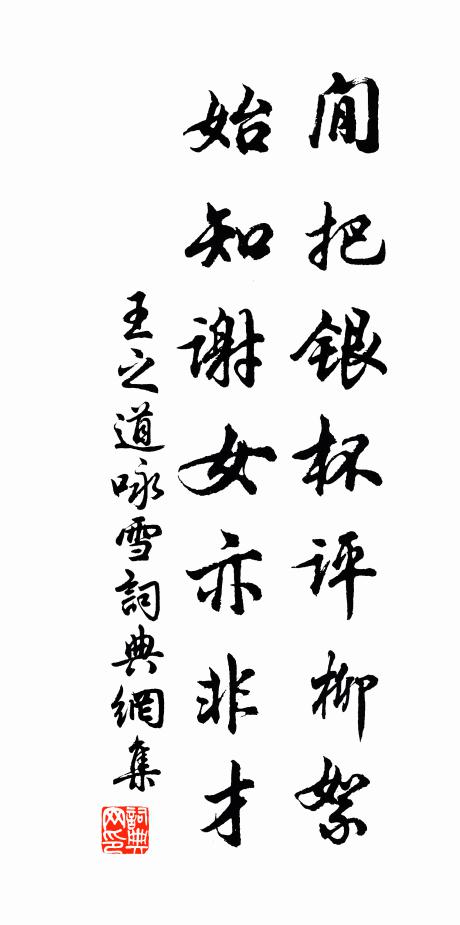 閒把銀杯評柳絮
始知謝女亦非才
王之道咏雪詞典網集
詞典网印